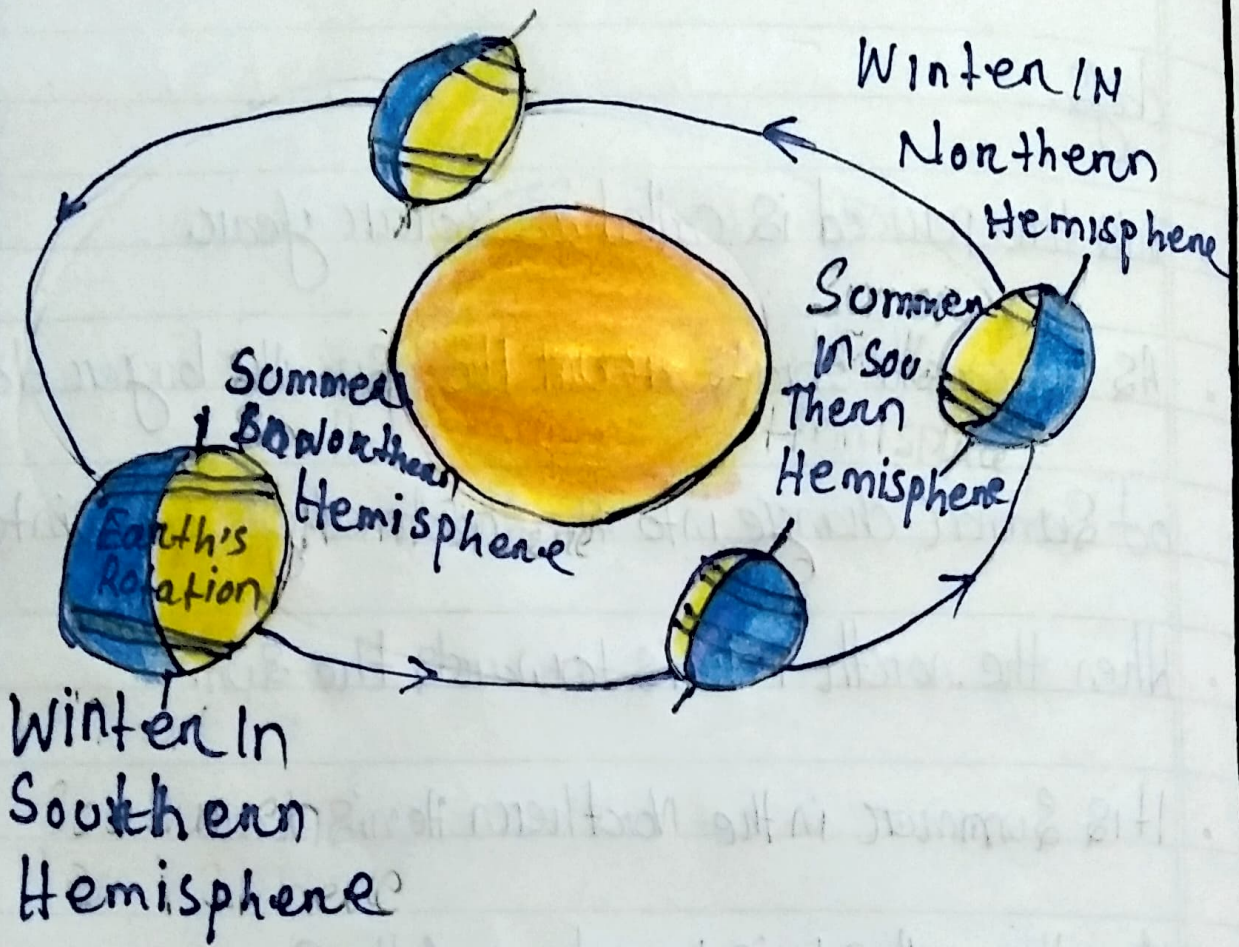 Winter IN
Northern
Hemisphere
Summer
In Sou
Thern
Hemisphere
Summer
Northern
Hemisphere
Earth's
Rotation
Winter In
Southern
Hemisphere